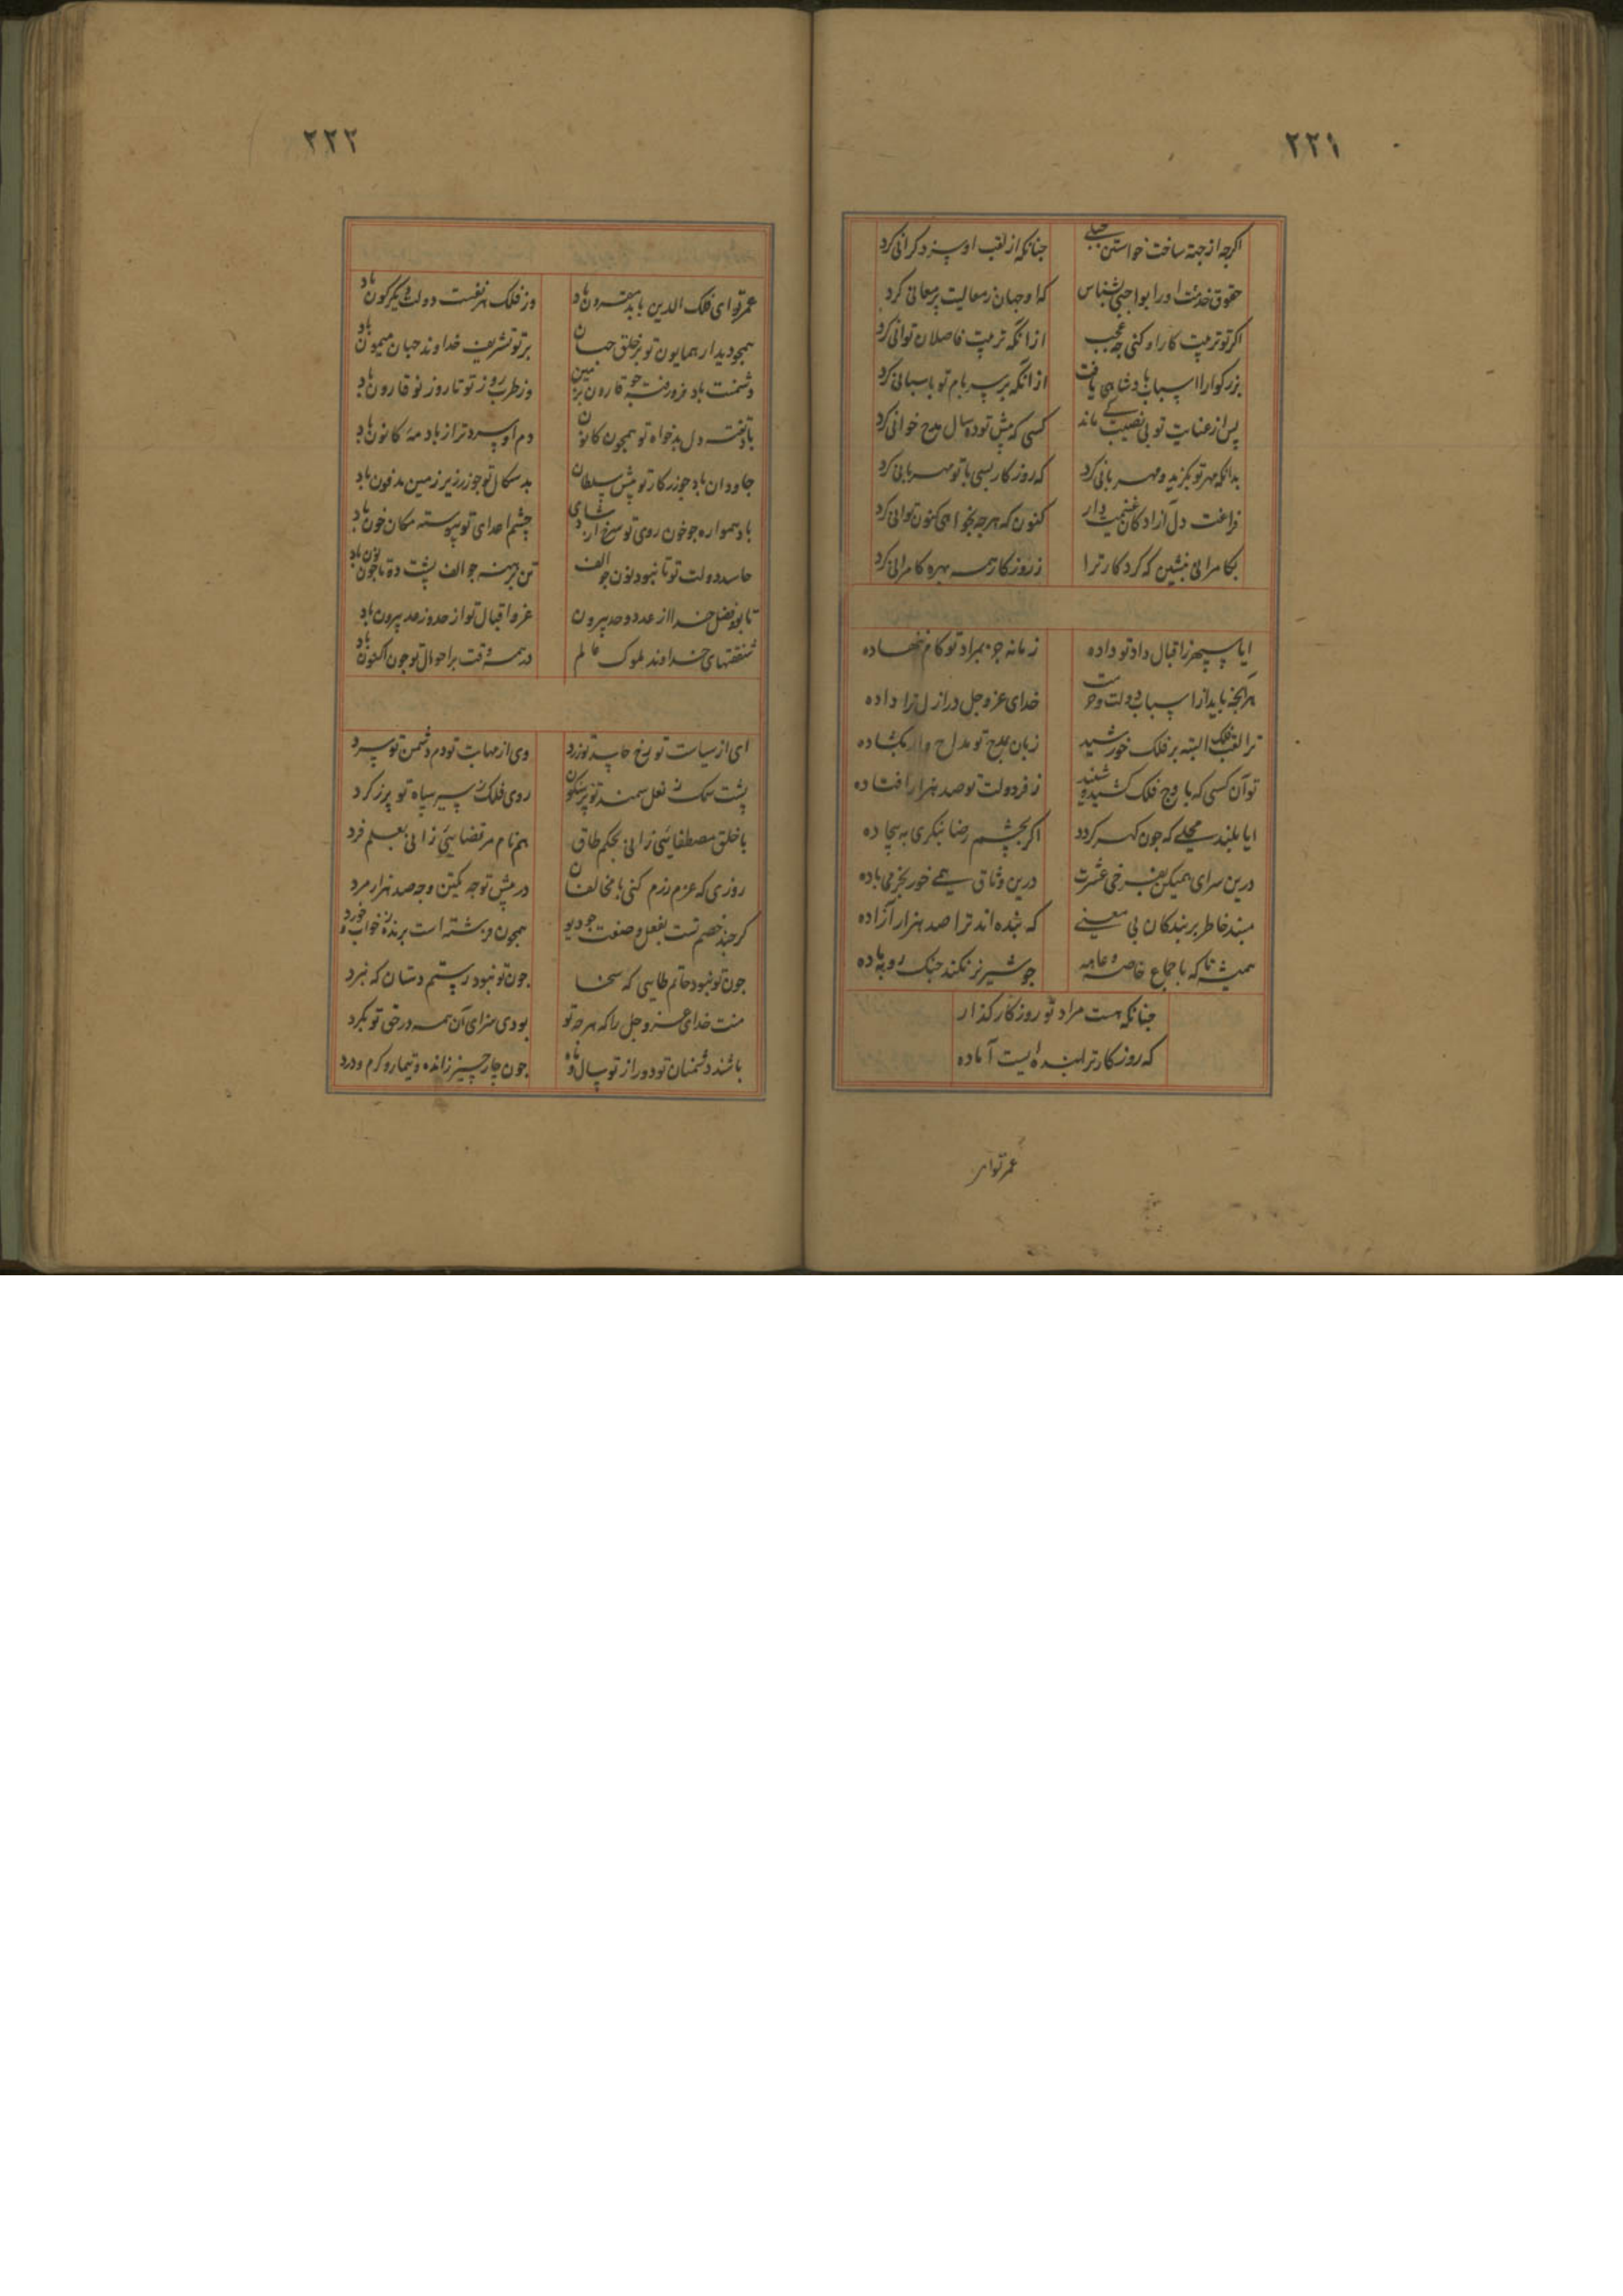 ۲۲۱
اکرچه از جبه ساخت خواستن جبلی چنانکه از لقب او سرد کرانی کرد
حقوق خدمت او را بواجبی بشناس که او جهان ز معالیت پر معانی کرد
اکر تو تربیت کار او کنی چه عجب از انکه تربیت فاضلان توانی کرد
بزرکوارا اسباب پادشاهی یافت از انکه بر سر بام تو پاسبانی کرد
پس از عنایت تو بی نصیب کی ماند کسی که پیش تو ده سال مدح خوانی کرد
بدانکه مهر تو بکزید و مهربانی کرد که روزکار بسی با تو مهربانی کرد
فراغت دل آزادکان غنیمت دار کنون که هرچه بخواهی کنون توانی کرد
بکامرانی بنشین که کردکار ترا ز روزکار همه بهره کامرانی کرد
ایا سپهر ز اقبال داد تو داده زمانه جز بمراد تو کام ننهاده
هرآنچه باید از اسباب دولت و حرمت خدای عز و جل در ازل ترا داده
ترا لقب فلک البته بر فلک خورشید زبان بمدح تو مداح وار بکشاده
تو آن کسی که باوج فلک کشیده شدند ز فر دولت تو صد هزار افتاده
ایا بلند محلی که چون کهر کردد اکر بچشم رضا بنکری به بیجاده
درین سرای همیکن بفرخی عشرت درین وثاق همی خور بخرمی باده
مبند خاطر بر بندکان بی معنی که بنده اند ترا صد هزار آزاده
همیشه تا که باجماع خاصه و عامه چو شیر نر نکند جنک روبه ماده
چنانکه هست مراد تو روزکار کذار
که روزکار ترا بنده ایست آماده
عمر تو ای
۲۲۲
عمر تو ای فلک الدین بابد مقرون باد وز فلک بهر نفست دولت دیکرکون باد
همچو دیدار همایون تو بر خلق جهان بر تو تشریف خداوند جهان میمون باد
دشمنت باد فرو رفته چو قارون بزمین وز طرب روز تو تا روز نو قارون باد
تافته دل بدخواه تو همچون کانون دم او سردتر از باد مه کانون باد
جاودان باد چو زر کار تو پیش سلطان بدسکال تو چو زر زیر زمین مدفون باد
باد همواره چو خون روی تو سرخ از شادی چشم اعدای تو پیوسته مکان خون باد
حاسد دولت تو تا نبود نون چو الف تن برهنه چو الف پشت دوتا چون نون باد
تا بود فضل خدا از عدد و حد بیرون عز و اقبال تو از حد و ز عد بیرون باد
شفقتهای خداوند ملوک عالم در همه وقت بر احوال تو چون اکنون باد
ای از سیاست تو رخ حاسد تو زرد وی از مهابت تو دم دشمن تو سرد
پشت سمک ز نعل سمند تو پر نکون روی فلک ز سیر سپاه تو پر ز کرد
با خلق مصطفایی زانی بحکم طاق هم نام مرتضایی زانی بعلم فرد
روزی که عزم رزم کنی با مخالفان در پیش تو چه یک تن و چه صد هزار مرد
کرچه خصم تست بفعل و صفت چو دیو همچون فرشته است برنده ز خواب و خورد
چون تو نبود حاتم طایی که سخا چون تو نبود رستم دستان که نبرد
منت خدای عز و جل را که هرچه تو بودی سزای آن همه در حق تو بکرد
باشند دشمنان تو دور از تو سال و ماه چون چار چیز ز انده و تیمار و کرم و درد